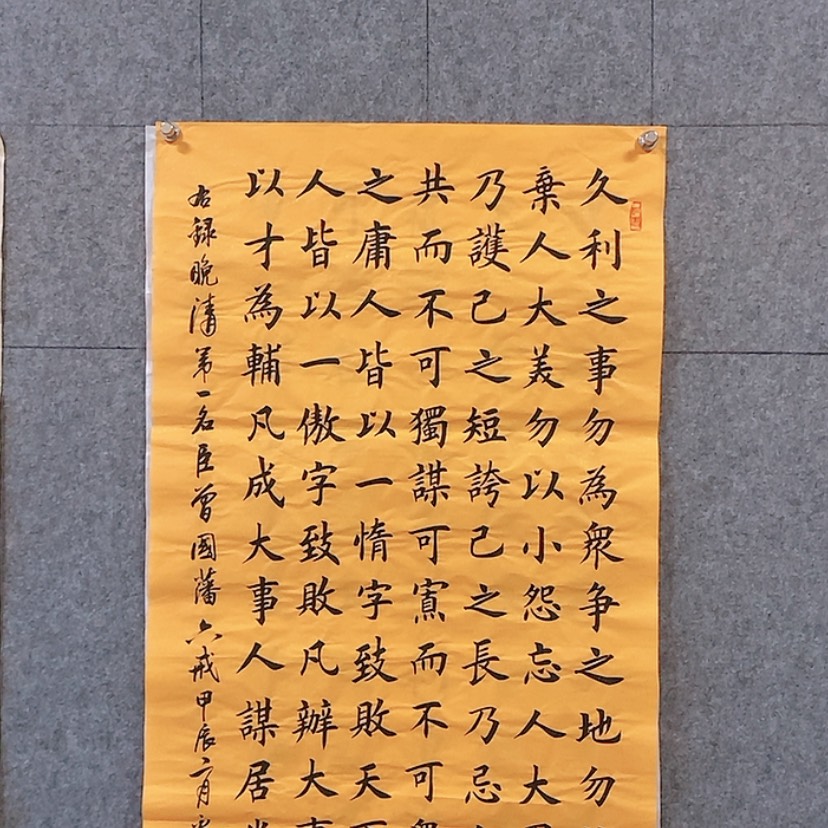 久利之事勿為衆争之地勿
棄人大美勿以小怨忘人大
乃護己之短誇己之長乃忌
共而不可獨謀可寡而不可
之庸人皆以一惰字致敗天
人皆以一傲字致敗凡辦大
以才為輔凡成大事人謀居
右録晚清第一名臣曾國藩六戒甲辰二月